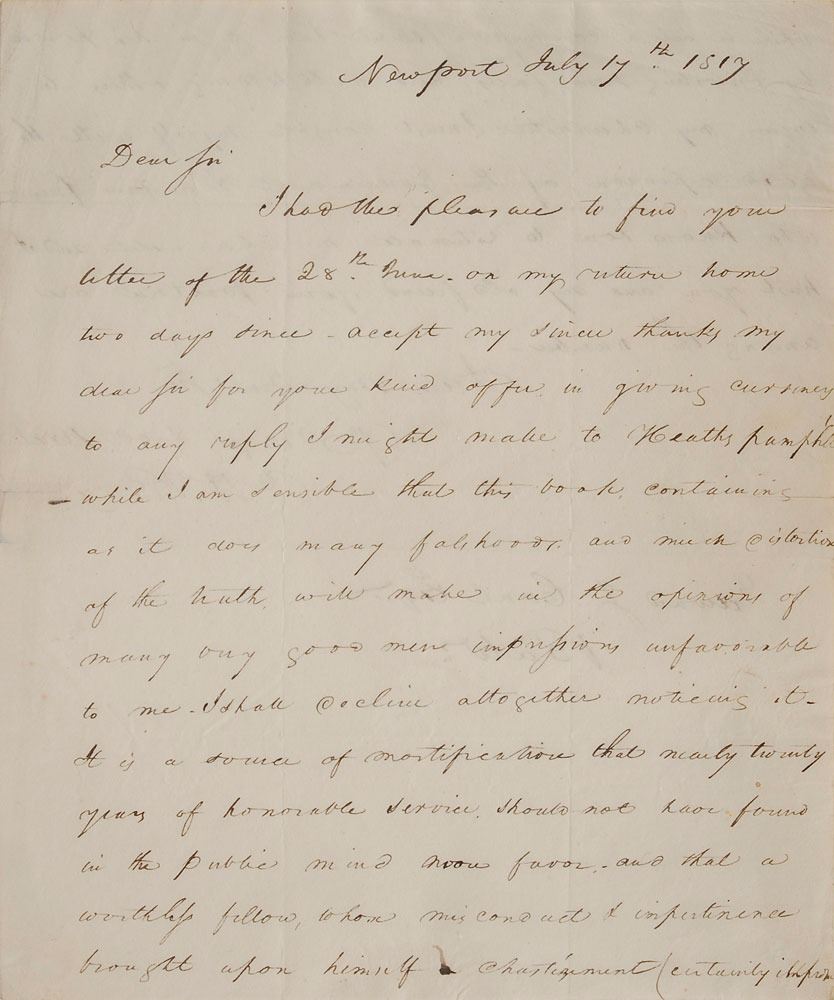 Newport July 17th 1817
Dear Sir
I had the pleasure to find your
letter of the 28th June. on my return home
two days since - accept my sincere thanks my
dear Sir for your kind offer in giving currency
to any reply I might make to Heaths pamphlet
while I am sensible that this book, containing
as it does many falshoods and much distortion
of the truth, will make in the opinions of
many very good men impressions unfavorable
to me - I shall decline altogether noticing it -
It is a source of mortification that nearly twenty
years of honorable service, should not have found
in the public mind more favor. and that a
worthless fellow, whose misconduct & impertinence
brought upon himself a chastisement (certainly